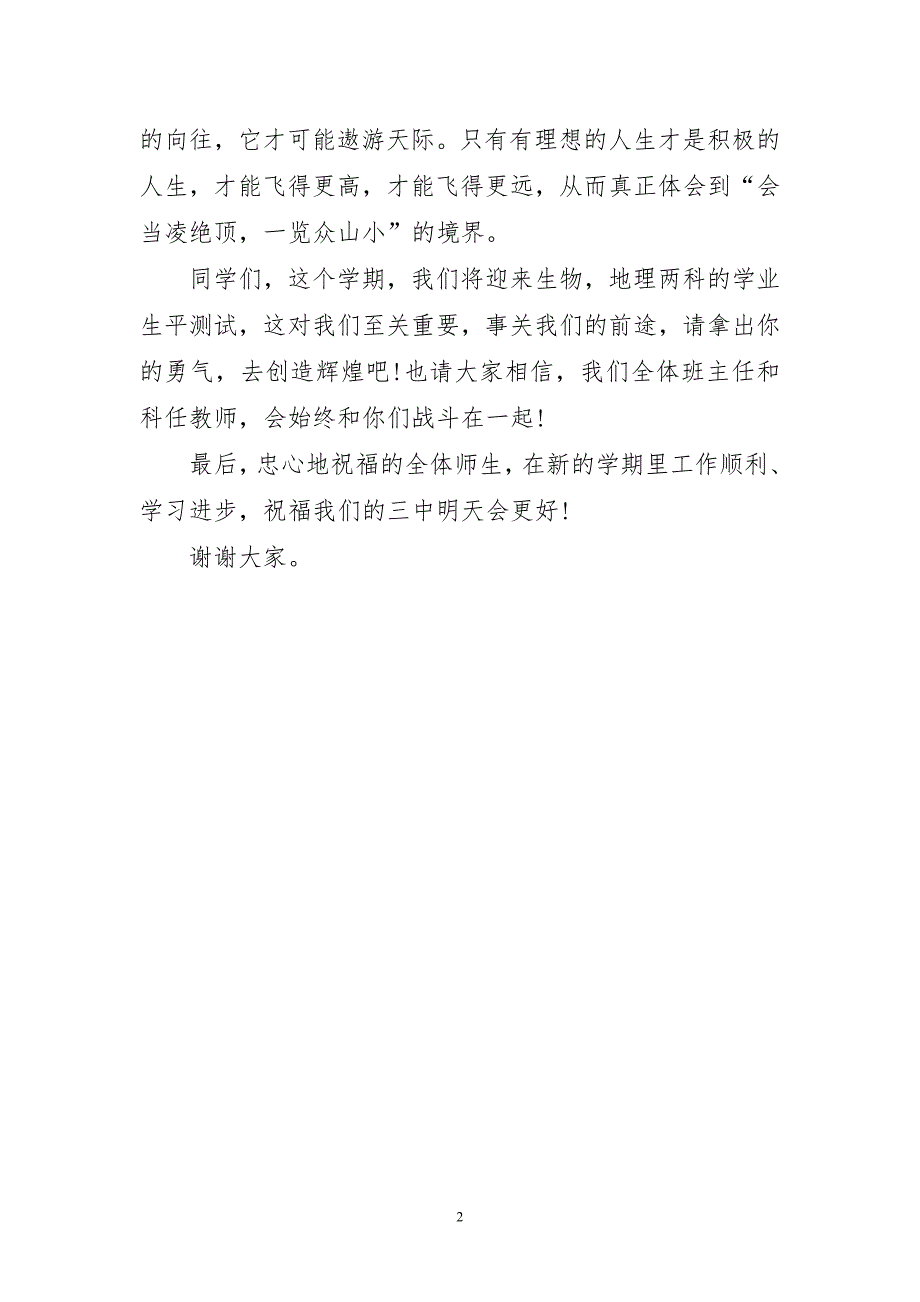 的向往，它才可能遨游天际。只有有理想的人生才是积极的
人生，才能飞得更高，才能飞得更远，从而真正体会到“会
当凌绝顶，一览众山小”的境界。
同学们，这个学期，我们将迎来生物，地理两科的学业
生平测试，这对我们至关重要，事关我们的前途，请拿出你
的勇气，去创造辉煌吧!也请大家相信，我们全体班主任和
科任教师，会始终和你们战斗在一起!
最后，忠心地祝福的全体师生，在新的学期里工作顺利、
学习进步，祝福我们的三中明天会更好!
谢谢大家。
2